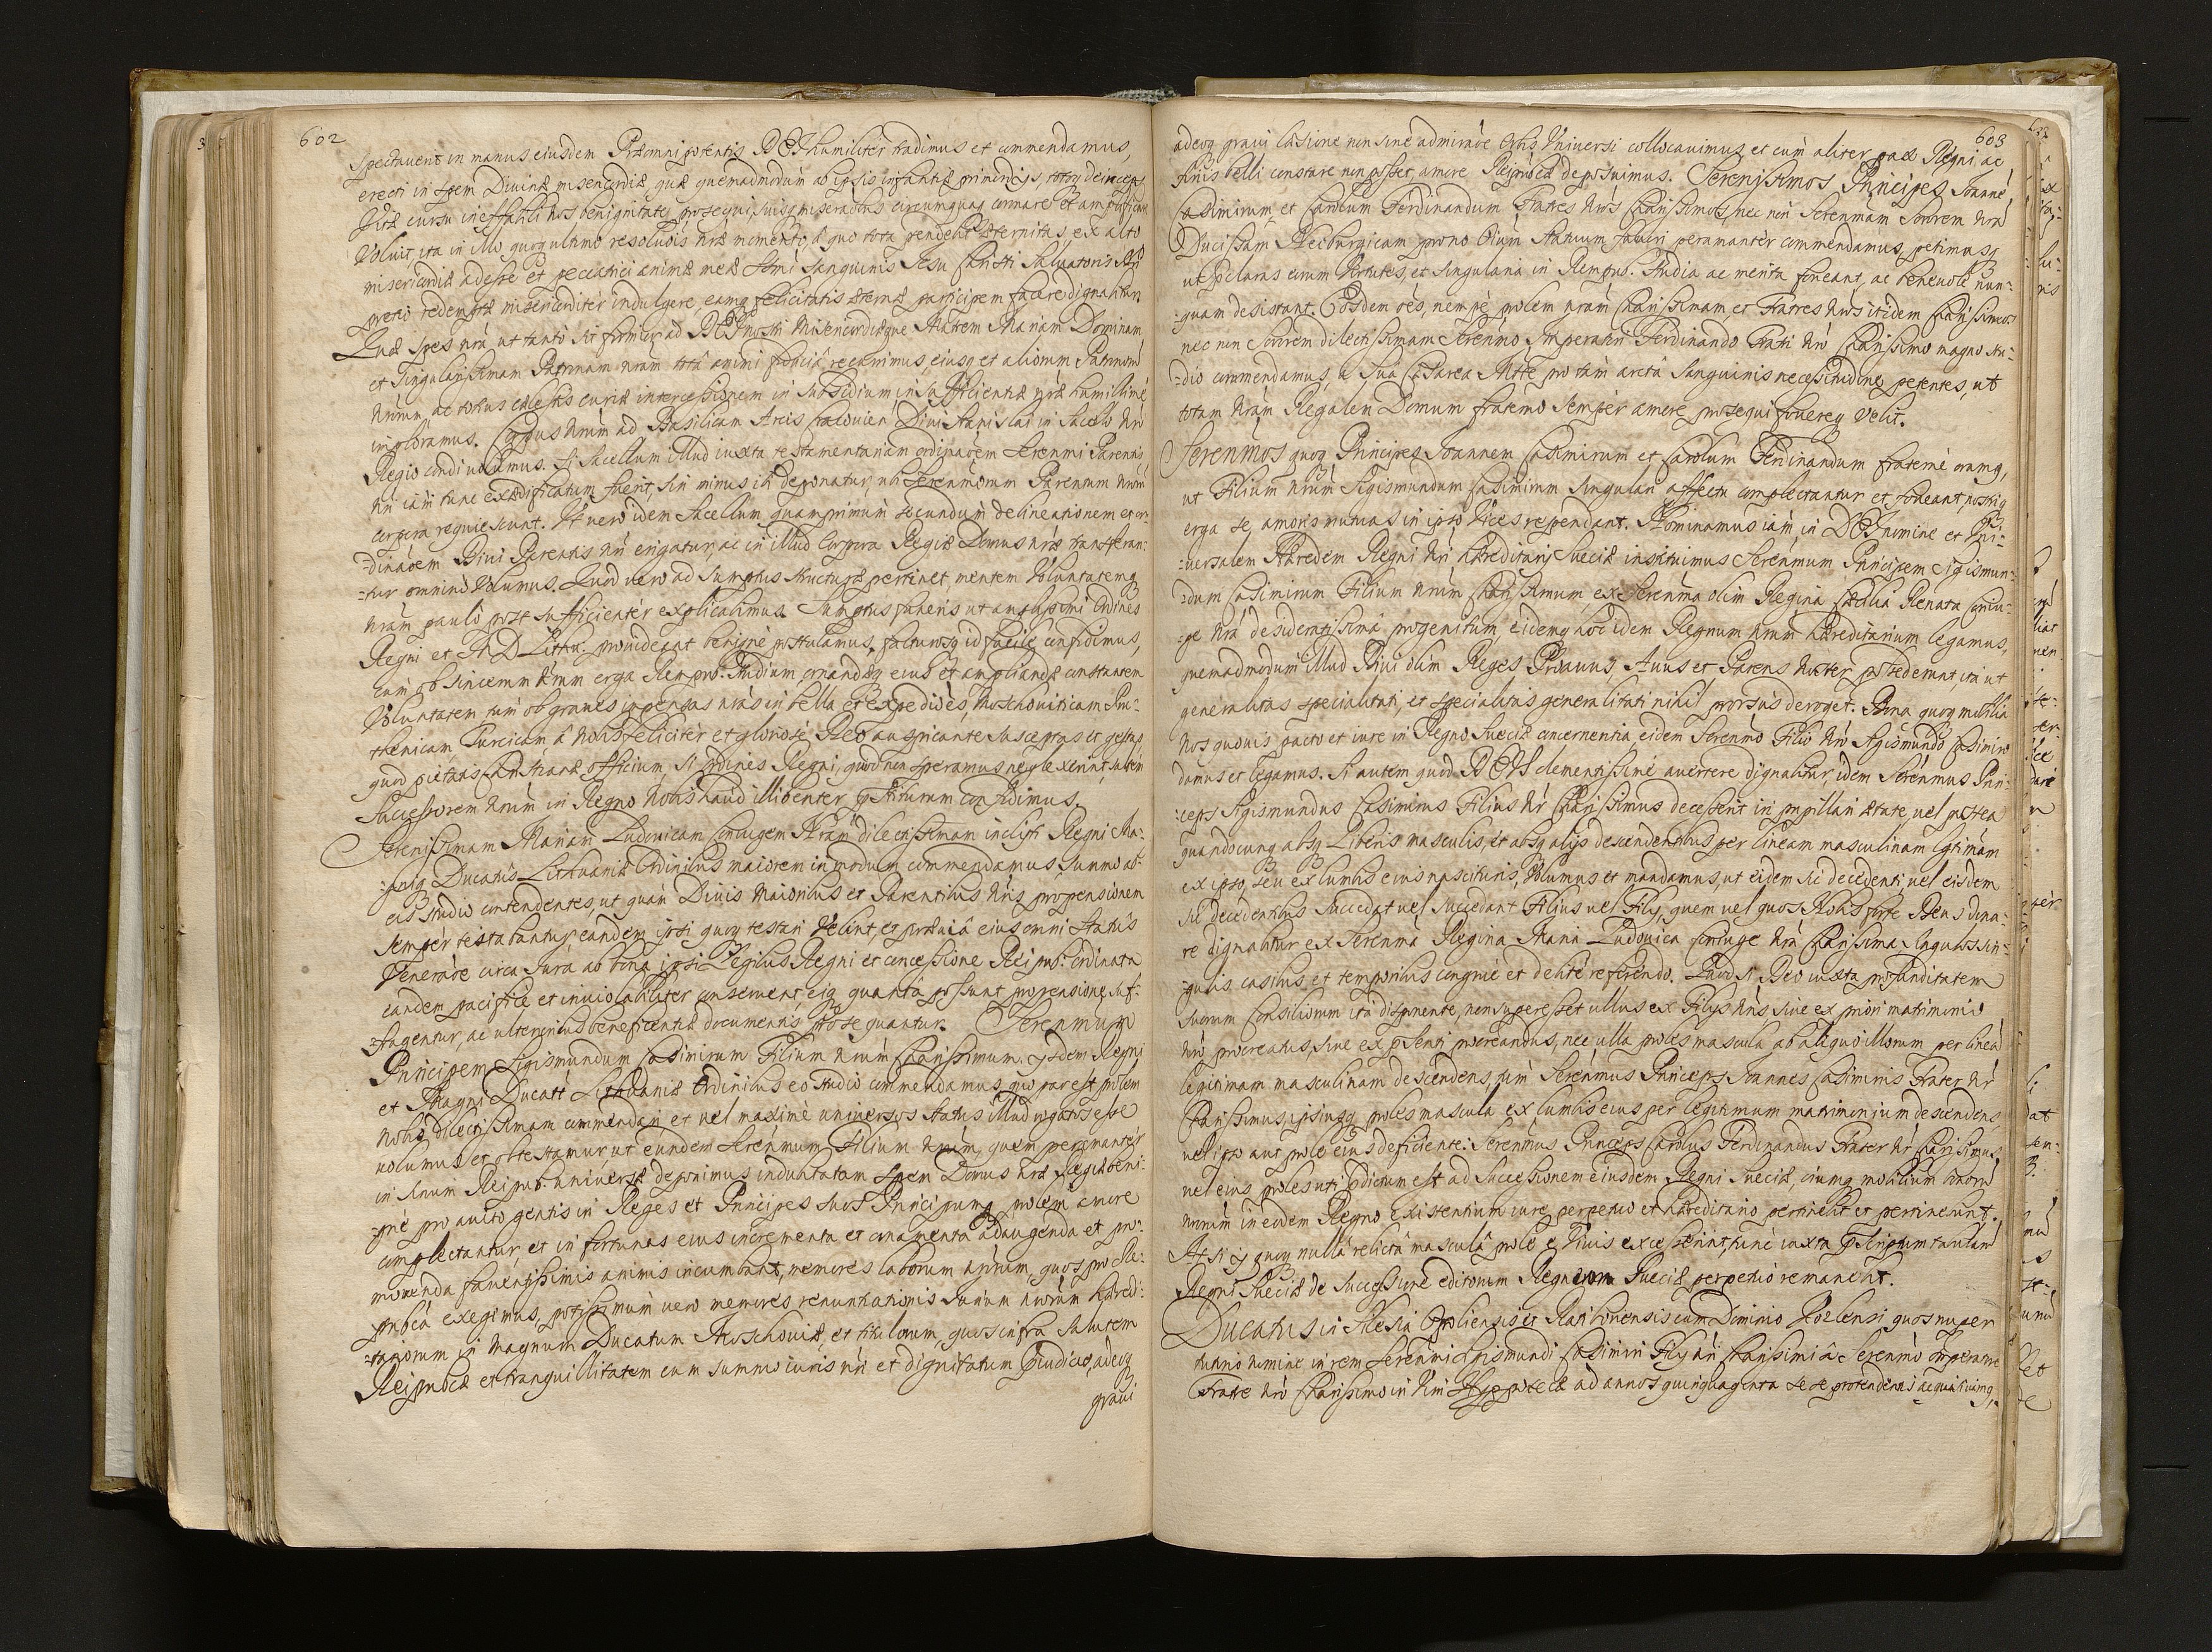 602
Spectaverit in manus eiusdem Præomnipotentis DEI humiliter tradimus et commendamus,
erecti in spem Divinæ misericordiæ, quæ quemadmodum ab ipsis infantiæ primordijs, totoq deinceps
Vitæ cursu ineffabili nos benignitate prosequi, suisq miseraõnis circumquaq ornare et amplificare
Voluit, ita in illo quoq ultimo resoluõis nræ momento, à quo tota pendebit æternitas, ex alto
misericordiæ adesse et peccatrici animæ meæ sĩmi Sanguinis Jesu Christi Salvatoris Nri
pretio redemptæ misericorditer indulgere, eamq felicitatis æternæ participem facere dignabitur.
Quæ spes nra ut tanto sit firmior ad DEI nostri Misericordiæque Matrem Mariam Dominam
et Singularissimam Patronam nram totâ animi fiduciâ recurrimus, ejusq et aliorum Patronorũ
nrorum, ac totius cælestis curiæ intercessionem in subsidium insufficientiæ nræ humillimè
imploramus. Corpus nrum ad Basilicam Arcis Cracovien Divi Stanislai in Sacello nro
Regio condi volumus. Si Sacellum illud iuxta testamentariam ordinaõem Serenmi Parentis
nri iam tunc exædificatum fuerit, sin minus ibi deponatur, ubi Serenmorum Parentum nrorũ
corpora requiescunt. Ut vero idem Sacellum quamprimum secundum delineationem et or-
-dinaõem Divi Parentis nri erigatur, ac in illud Corpora Regiæ Domus nræ transferan-
-tur omnino Volumus. Quod vero ad sumptus structuræ pertinet, mentem Voluntatemq
nram paulò post sufficienter explicabimus. Sumptus funeris ut amplissimi Ordines
Regni et M D Lithu. provideant benignè postulamus, facturosq id facile confidimus,
cum ob sincerum nrum erga Rempub. studium, ornandæq eius et ampliandæ constantem
Voluntatem tum ob graves impensas nras in bella et expeditões, Moschoviticam Pru-
-thenicam, Turcicam à Nobis feliciter et gloriosè, Deo auspicante susceptas et gestas
quod pietatis Christianæ officium, si Ordines Regni, quod non speramus neglexerint, saltem
Successorem nrum in Regno Nobis haud illibenter pstiturum confidimus.
Serenissimam Mariam Ludovicam Coniugem Nram dilectissimam inclyti Regni Ma-
-gniq Ducatus Lithuaniæ Ordinibus maiorem in modum commendamus, summo ab
eis studio contendentes, ut quam Divis Maioribus et Parentibus nris propensionem
semper testabantur, eandem ipsi quoq testari Velint, et præuiâ eius omni Status
Veneraõe circa Jura ac bona, ipsi Legibus Regni et concessione Reipub. Ordinata
eandem pacificè et inviolabiliter conservent, eiq quantâ possunt propensione suf-
-fragentur, ac ulterioribus beneficentiæ documentis prosequantur. Serenmum
Principem Sigismundum Casimirum Filium nrum Charissimum ijsdem Regni
et Magni Ducatus Lithuaniæ Ordinibus eo studio commendamus, quo par est prolem
Nobis dilectissimam commendari et vel maximè universos Status illud rogatos esse
volumus et obtestamur ut eundem Serenmum Filium nrum, quem peramanter
in sinum Reipub. universæ deponimus, indubitatam spem Domus nræ Regiæ beni-
-gnè pro avito gentis in Reges et Principes suos Principumq prolem amore
complectantur, et in fortunas eius incrementa et ornamenta adaugenda et pro-
-movenda faventissimis animis incumbant, memores laborum nrorum, quos pro Re-
-publcâ exegimus, potissimum vero memores renuntiationis Jurium nrorum hæred-
-itariorum in Magnum Ducatum Moschoviæ, et titulorum, quos infra salutem
Reipublcæ et tranquillitatem cum summo iuris nri et dignitatum Pjudicio, adeoq
gravi
603
adeoq gravi læsione non sine admiraõe Orbis Universi collocavimus, et cum aliter pax Regni ac
finis belli constare non posset, amore Reipublcæ deposuimus. Serenissimos Principes Joannẽ
Casimirum, et Carolum Ferdinandum Fratres nros Charissimos, nec non Serenmam Sororem nrã
Ducissam Neoburgicam prono Oium Statuum favori peramanter commendamus, petimusq
ut pclaras eorum Virtutes, et singularia in Rempub. studia ac merita foveant, ac benevolè nun-
-quam desistant. Eosdem oes, nempe prolem nram Charissimam, et Fratres nros itidem Charissimos
nec non Sororem dilectissimam Serenmo Imperatori Ferdinando Fratri nro Charissimo magno stu-
-dio commendamus, a Sua Cæsarea Mtte pro tam arcta Sanguinis necessitudine petentes, ut
totam nram Regalem Domum fraterno semper amore prosequi fovereq Velit.
Serenmos quoq Principes Joannem Casimirum et Carolum Ferdinandum fraternè oramq,
ut Filium nrum Sigismundum Casimirum singulari affectu complectantur et foveant, nostriq
erga se amoris mutuas in ipso Vices rependant. Nominamus iam in DEI nomine et Uni-
-versalem Hæredem Regni Nri hæreditarij Sueciæ instituimus Serenmum Principem Sigismun-
-dum Casimirum Filium nrum Charissimum, ex Serenma olim Regina Cæcilia Renata Coniu-
-ge nra desideratissima progenitum, eidemq hoc idem Regnum nrum hæreditarium legamus,
quemadmodum illud Divi olim Reges Proavus, Avus et Parens Noster possederunt, ita ut
generalitas specialitati, et specialitas generalitati nihil prorsus deroget. Bona quoq mobilia
Nos quovis pacto et iure in Regno Sueciæ concernentia, eidem Serenmo Filio nro Sigismundo Casimiro
damus et legamus. Si autem quod DEUS clementissimè avertere dignabitur, idem Serenmus Prin-
-ceps Sigismundus Casimirus Filius Nr Charissimus decesserit in pupillari ætate, vel postea
quandocunq absq Liberis masculis, et absq alijs descendentibus per lineam masculinam lgtimam
ex ipso, seu ex lumbis eius nascituris, Volumus et mandamus, ut eidem sic decedenti, vel eisdem
sic decedentibus Succedat vel Succedant Filius vel Filij, quem vel quos Nobis forte Deus dona-
re dignabitur ex Serenma Regina Maria Ludovica Coniuge nra Charissima, singula sin-
-gulis casibus et temporibus congruè et debitè referendo. Quod si Deo iuxta profunditatem
suorum Consiliorum ita disponente, non superesset ullus ex Filijs nris sive ex priori matrimonio
nro procreatus, sive ex psenti procreandus, nec ulla proles mascula ab aliquo illorum per lineã
legitimam masculinam descendens, tum Serenmus Princeps Joannes Casimirus Frater Nr
Charissimus, ipsiusq proles mascula ex lumbis eius per legitimum matrimonium descendens,
vel ipso aut prole eius deficiente: Serenmus Princeps Carolus Ferdinandus Frater Nr Charissimus
vel eius proles uti pdictum est ad Successionem eiusdem Regni Sueciæ, eiusq mobilium bonorũ
nrorum in eodem Regno Existentium iure perpetuo et hæreditario pertinebit et pertinebunt.
At si ij quoq nullâ relictâ masculâ prole è Vivis excesserint, tunc iuxta pscriptum tabularũ
Regni Sueciæ de Successione editorum Regnum Sueciæ perpetuò remanebit.
Ducatus in Silesia Opoliensis et Ratiboriensis cum Dominio Kozlensi quos nuper
dotario nomine in rem Serenmi Sigismundi Casimiri Filij nri Charissimi à Serenmo Imperatore
Fratre nro Charissimo in Vim Hyppotecæ ad annos quinquaginta sese protendentis acquisivimq,